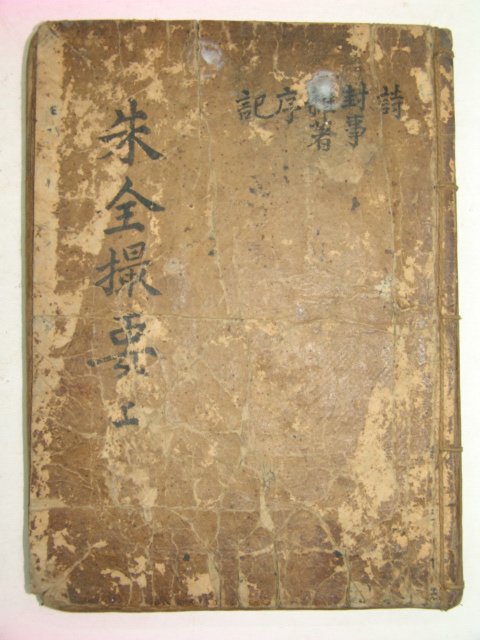 詩
封事
著
序
記
朱全撮要 上